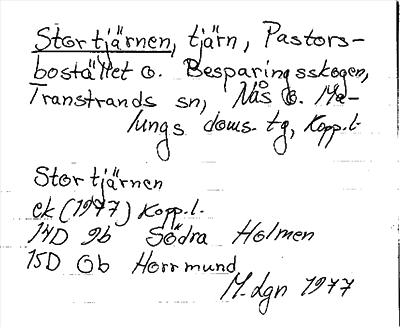 Stortjärnen, tjärn, Pastors-
bostället o. Besparingsskogen,
Transtrands sn, Nås o. Ma-
lungs doms. tg, Kopp.l.
Stortjärnen
ek (1977) Kopp.l.
14D 9b Södra Holmen
15D 0b Horrmund
M.dgn 1977